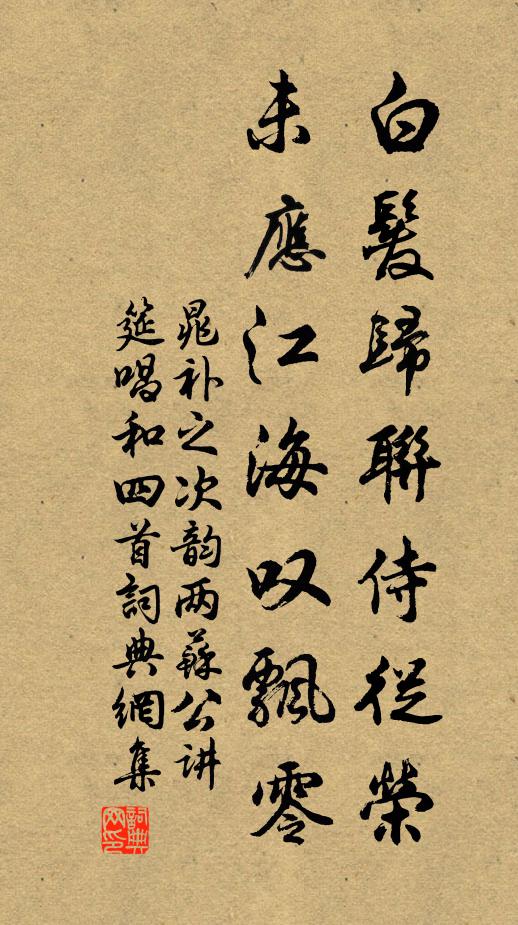 白髮歸聯侍從榮
未應江海叹飄零
晁补之次韵两蘇公讲
筵唱和四首詞典網集
詞典
网印